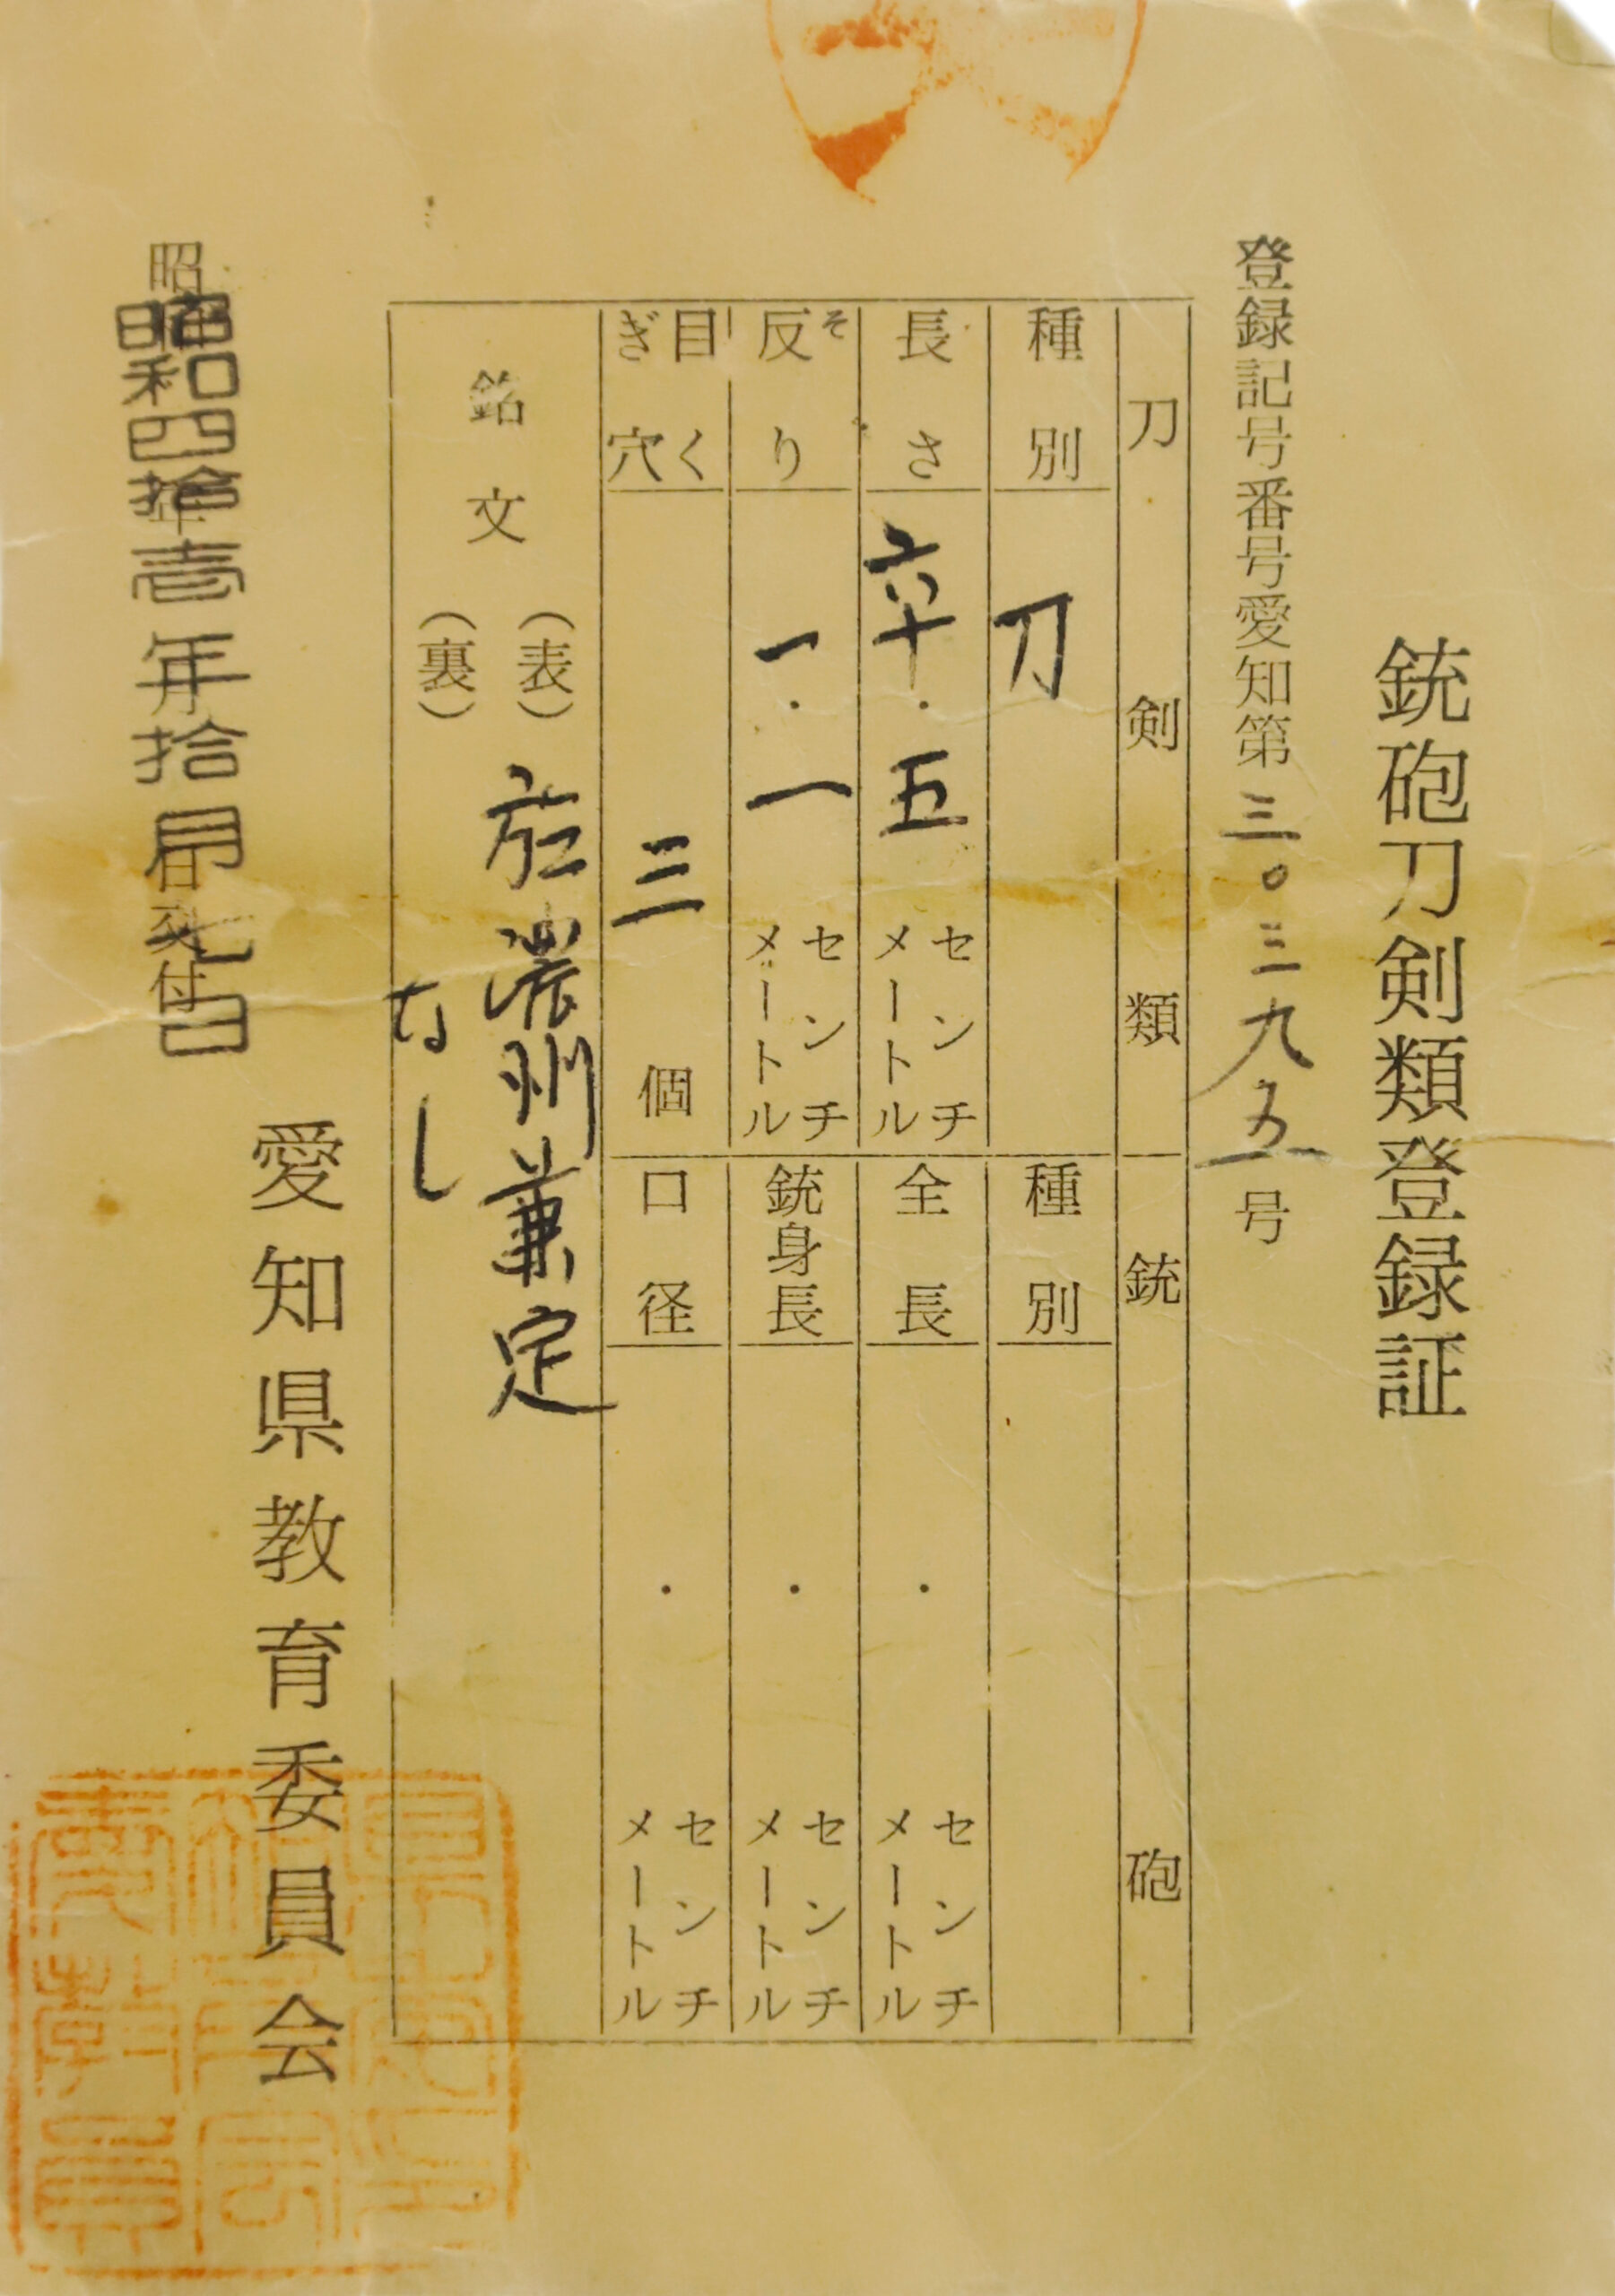 銃砲刀剣類登録証
登録記号番号愛知第三〇三九五号
刀剣類
銃砲
種別 刀
長さ 六十・五 センチメートル
反り 一・一 センチメートル
そ
目くぎ穴 三個
銘文
(表) 於濃州兼定
(裏) なし
種別
全長 ・ センチメートル
銃身長 ・ センチメートル
口径 ・ センチメートル
昭和四拾壱年拾月七日
交付
愛知県教育委員会